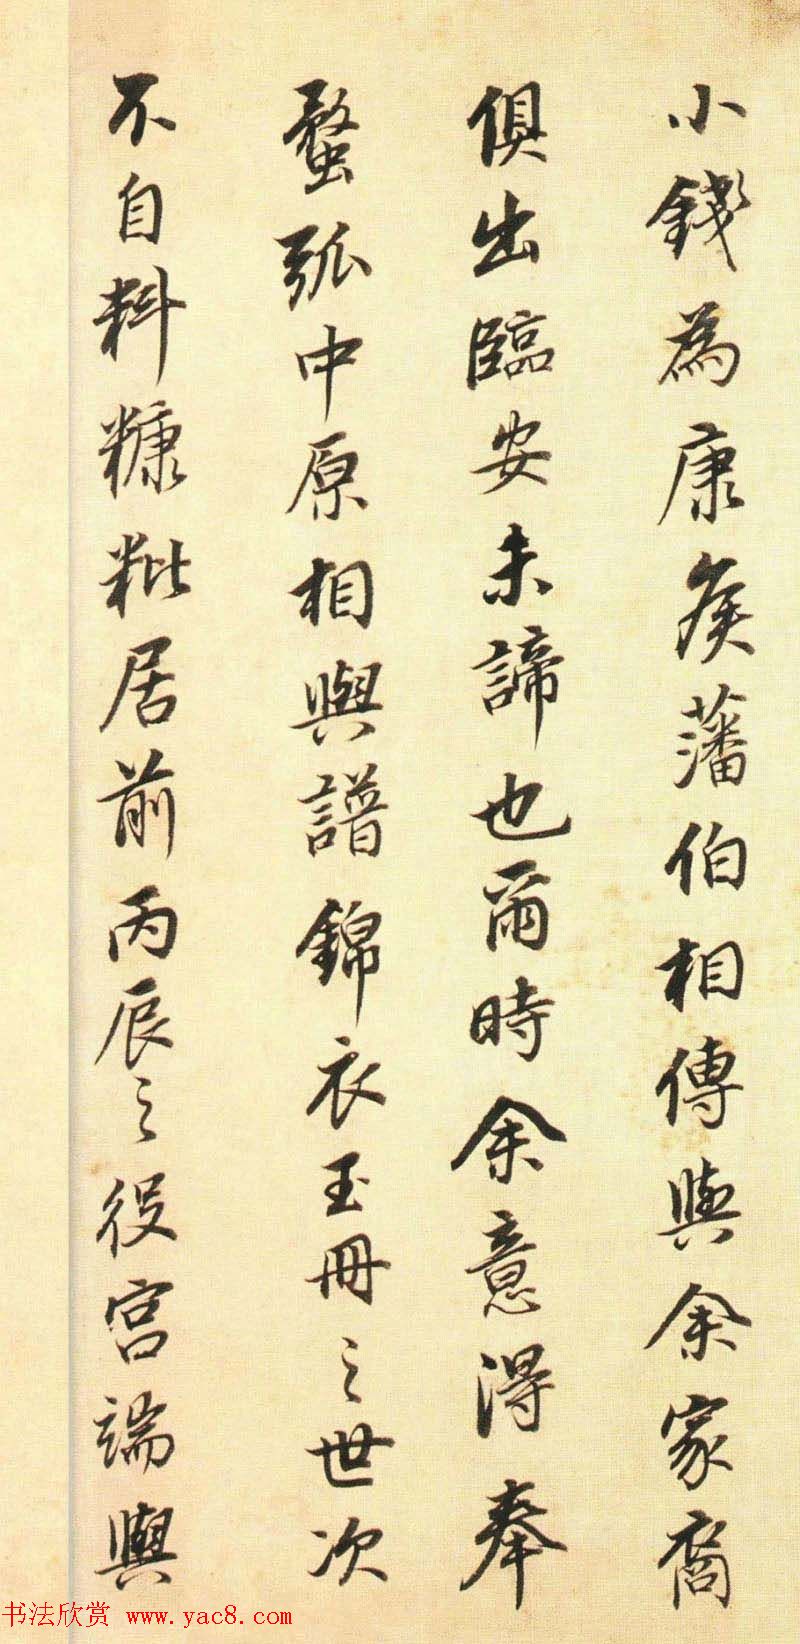 小錢為康矦藩伯相傳與余家裔
俱出臨安未諦也爾時余意得奉
蝥弧中原相與譜錦衣玉冊之世次
不自料糠粃居前丙辰之役宮端與
书法欣赏 www.yac8.com